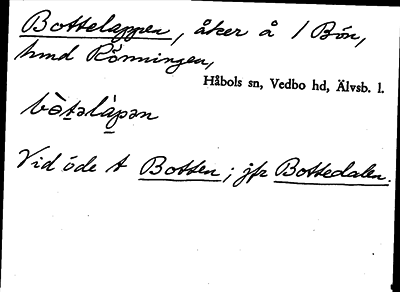 Bottelappen, åker å 1 Bön,
hmd Rönningen,
Håbols sn, Vedbo hd, Älvsb. l.
bòtəlàpən
Vid öde t Botten; jfr Bottedalen.